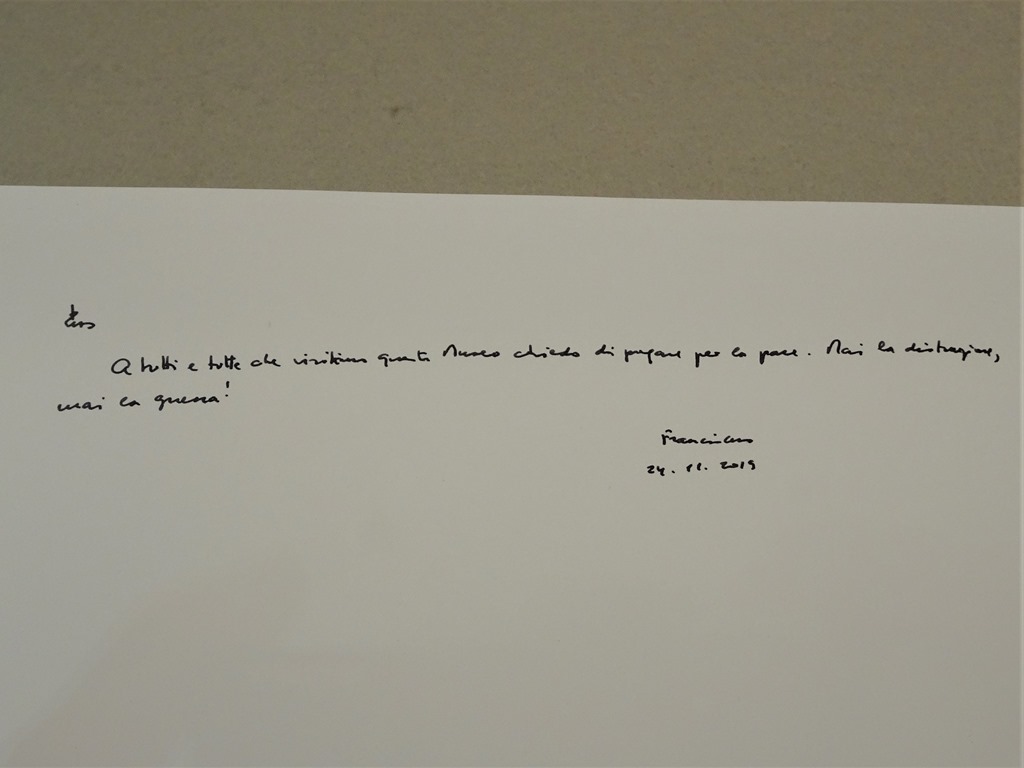 A tutti e tutte che visitiamo questo Museo chiedo di pregare per la pace. Mai la distruzione,
mai la guerra!
Francisco
24. 11. 2019